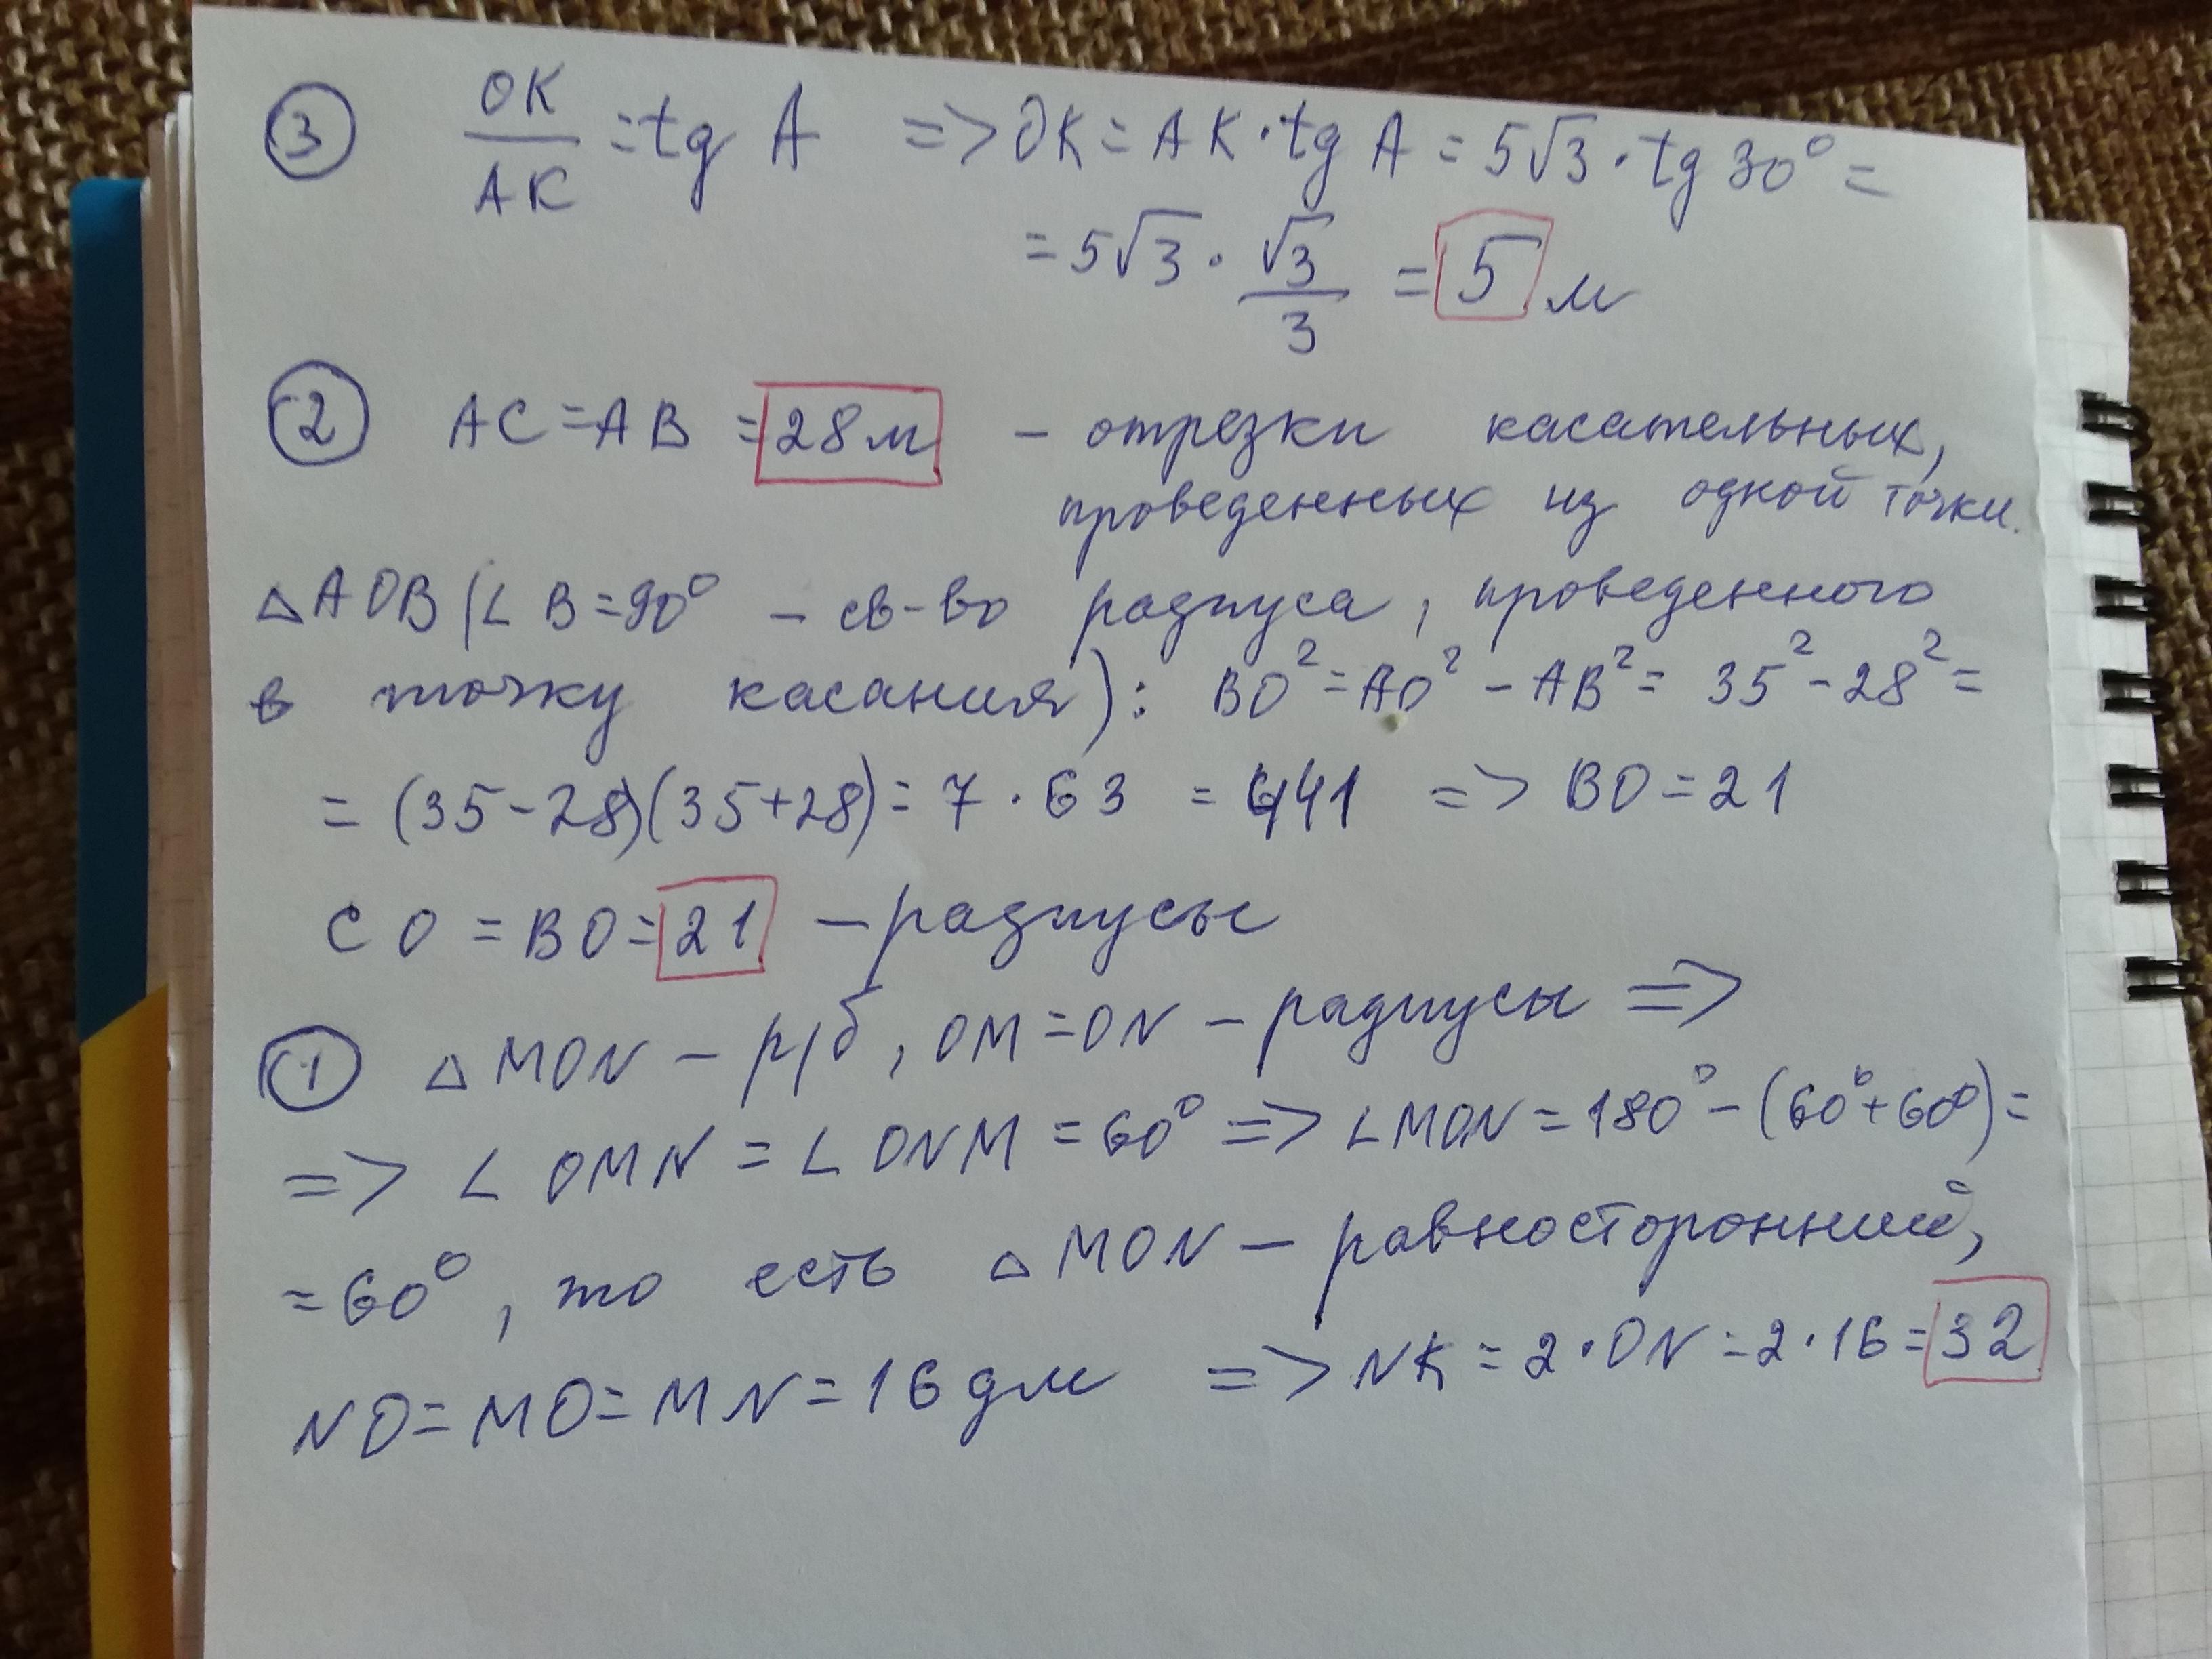 ③ OK/AK = tg A => OK = AK · tg A = 5√3 · tg 30° =
= 5√3 · √3/3 = 5 м
② AC = AB = 28 м – отрезки касательных,
проведенных из одной точки.
△AOB (∠B = 90° – св-во радиуса, проведенного
в точку касания): BO² = AO² – AB² = 35² – 28² =
= (35 – 28)(35 + 28) = 7 · 63 = 441 => BO = 21
CO = BO = 21 – радиусы
① △MON – р/б, OM = ON – радиусы =>
=> ∠OMN = ∠ONM = 60° => ∠MON = 180° – (60° + 60°) =
= 60°, то есть △MON – равносторонний,
NO = MO = MN = 16 дм => NK = 2 · ON = 2 · 16 = 32